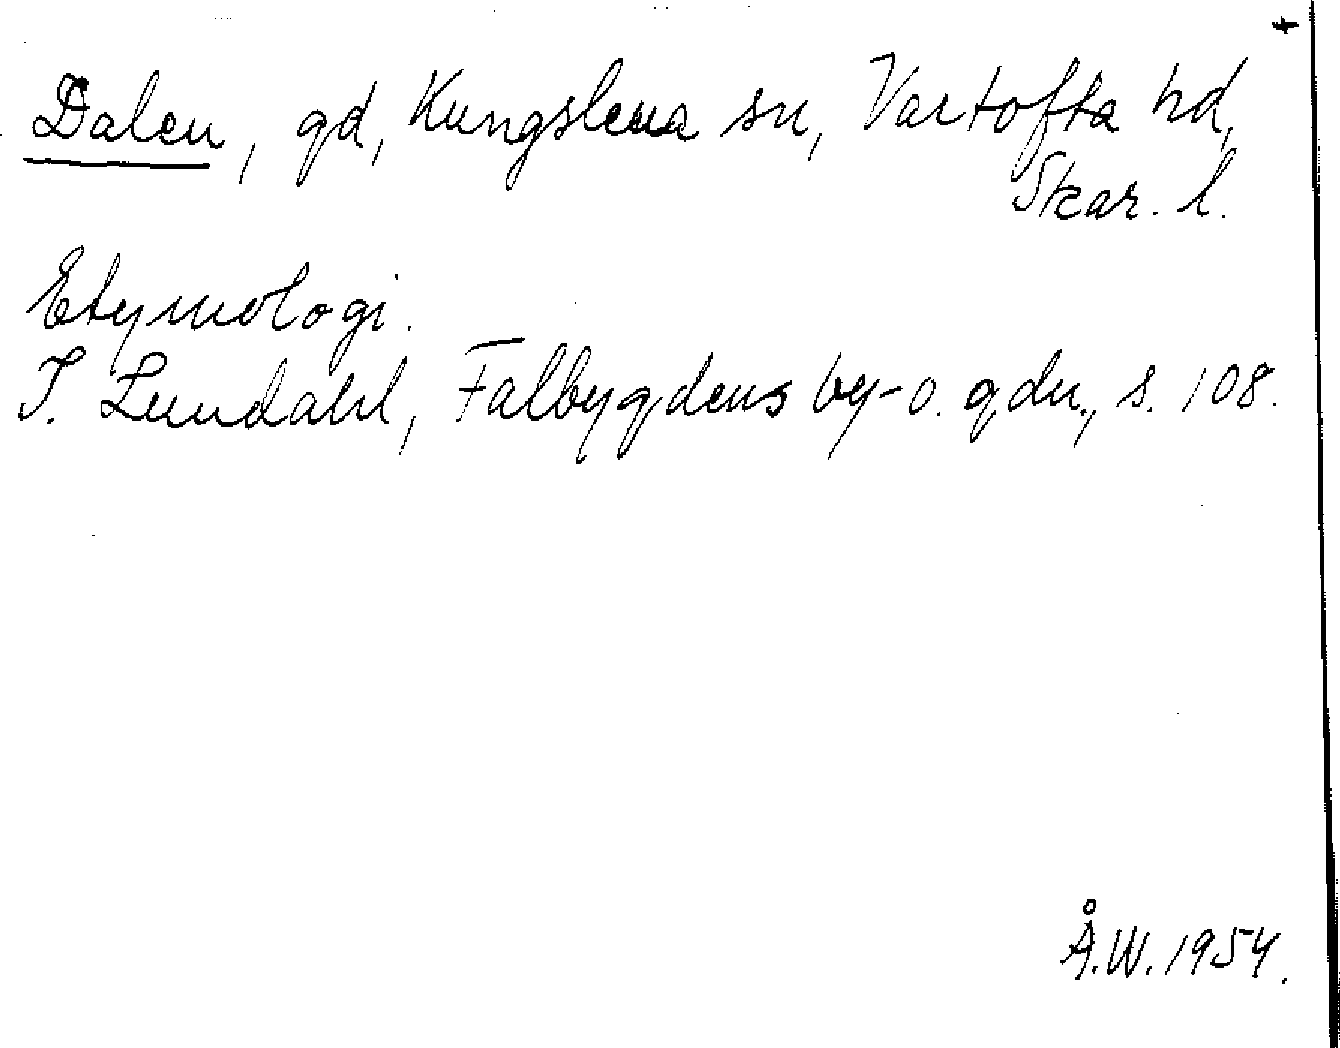 Dalen, gd, Kungslena sn, Vartofta hd,
Skar. l.
Etymologi.
I. Lundahl, Falbygdens by- o. gdn., s. 108.
Å.W. 1954.